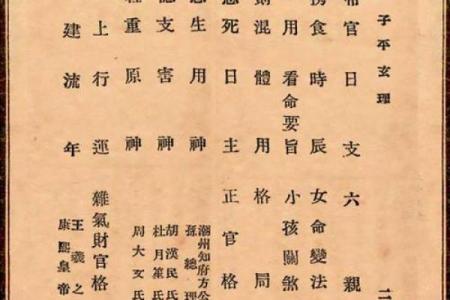 子平玄理
官日支六親
食時辰 女命變法
用看命要旨 小孩關煞
混體用格局
死日主正官格
生用神 潮州知府方公
孫總理
支害神 胡漢民氏
杜月笙氏
重原神 周大文氏
上行運 雜氣財官格
建流年 王羲之
康熙皇帝